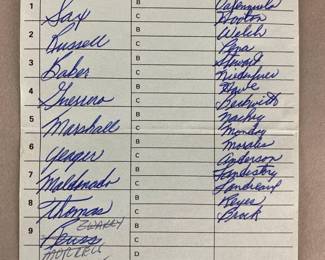 1 Sax B Valenzuela
C Hooton
2 Russell B Welch
C Pena
3 Baker B Stewart
C Niedenfuer
4 Guerrero B Howe
C Beckwith
5 Marshall B Mackey
C Monday
6 Yeager B Morales
C Anderson
7 Maldonado B Landestoy
C Landreaux
8 Thomas B Reyes
C Brock
9 Reuss B
C
D